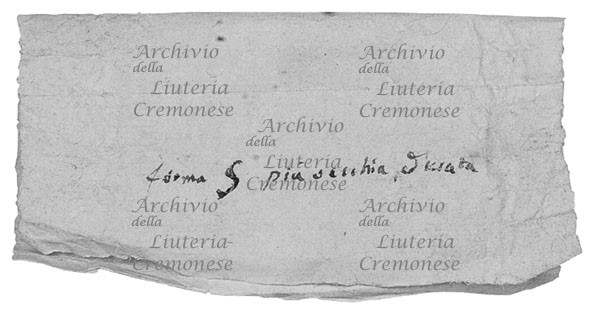 Archivio
della
Liuteria
Cremonese
Archivio
della
Liuteria
Cremonese
Archivio
della
Liuteria
Cremonese
forma S piu vecchia,
Archivio
della
Liuteria
Cremonese
Archivio
della
Liuteria
Cremonese